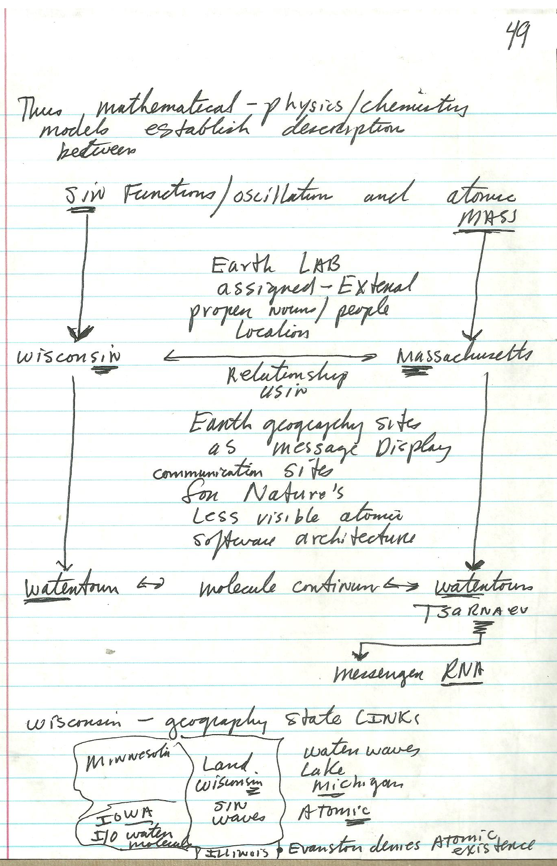 49
Thus mathematical-physics/chemistry
models establish description
between
SIN Functions/oscillation and atomic
MASS
Earth LAB
assigned-External
proper nouns/people
Location
wisconsin Massachusetts
Relationship
usin
Earth geography sites
as message Display
communication sites
for Nature's
Less visible atomic
software architecture
watertown ↔ molecule continum ↔ watertown
TSARNAEV
messenger RNA
wisconsin - geography state LINKs
Minnesota Land water waves
wisconsin Lake
Michigan
IOWA SIN Atomic
I/O water waves
molecule Illinois Evanston denies Atomic
existence